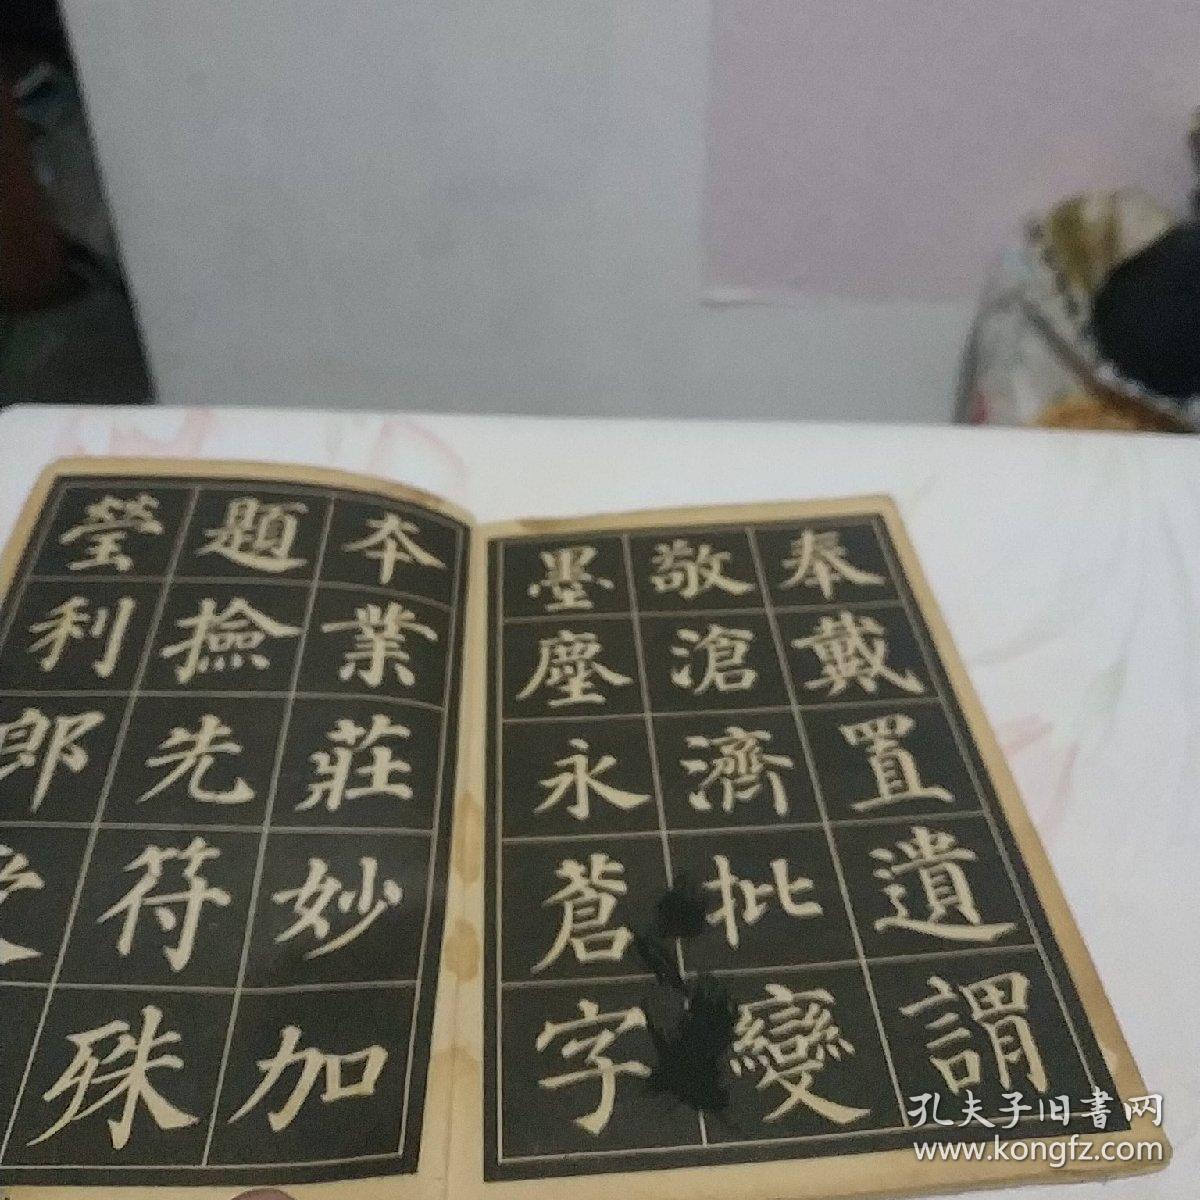 奉戴置遺謂
敬滄濟批變
墨塵永蒼字
本業莊妙加
題撿先符殊
瑩利郎
孔夫子旧書网
www.kongfz.com